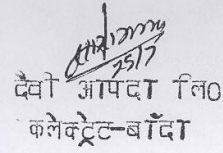 25/7
दैवी आपदा लि0
कलेक्ट्रेट-बाँदा